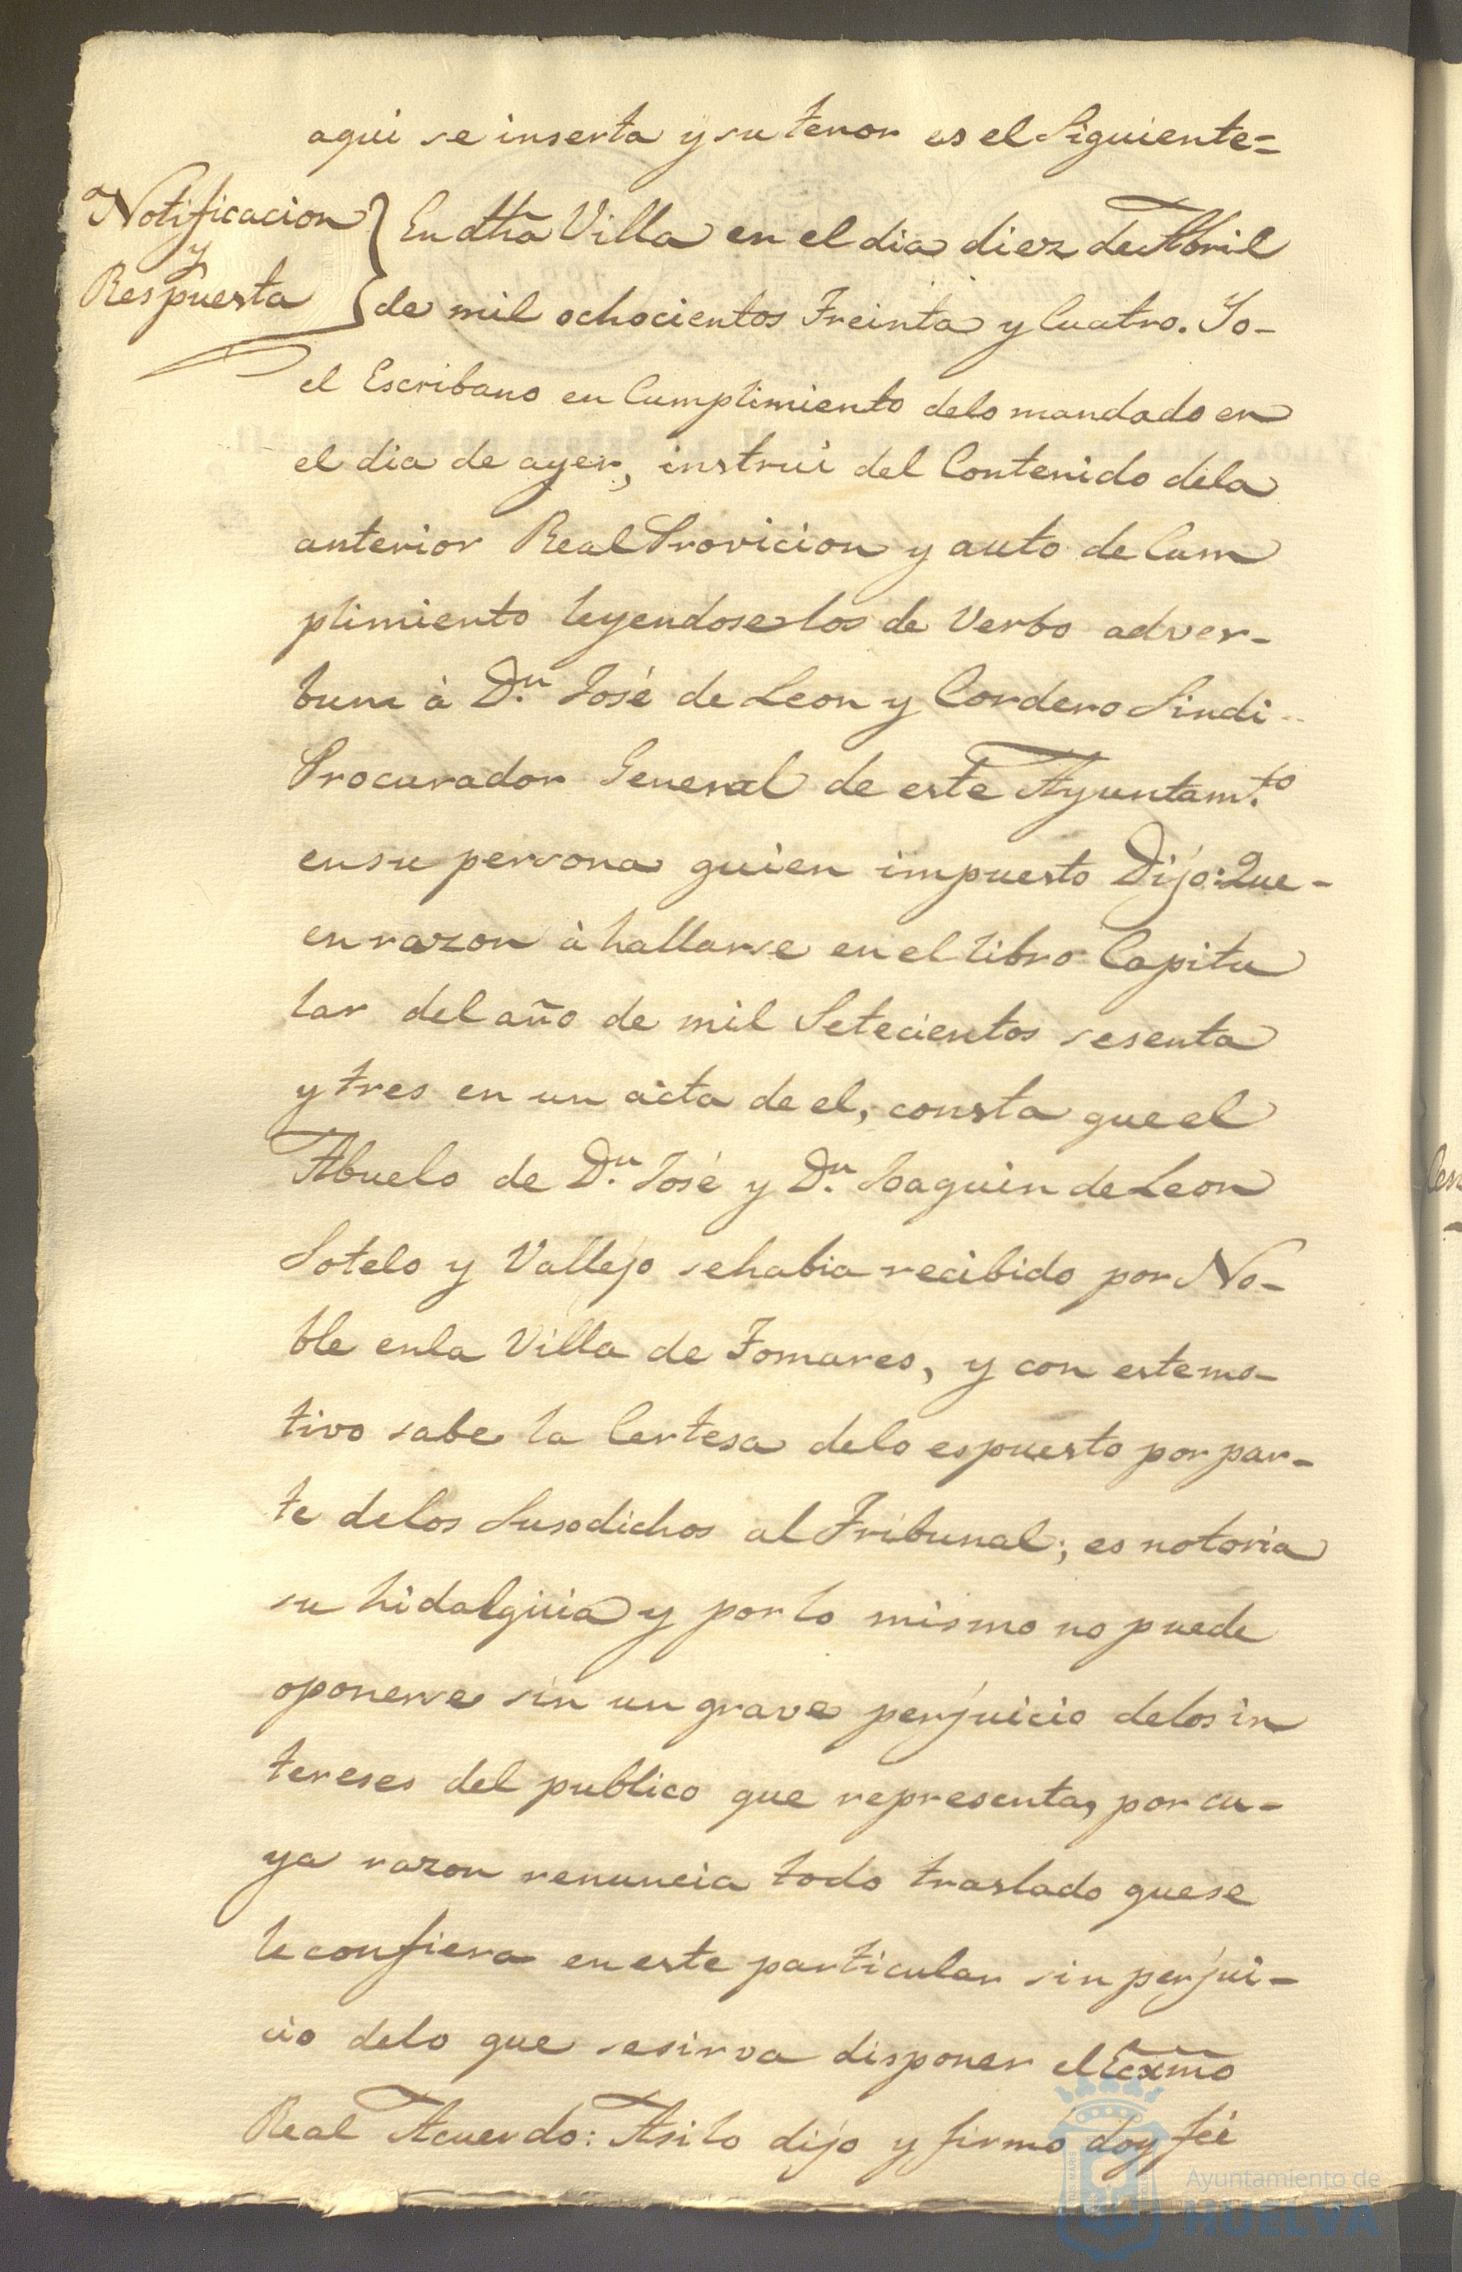 aqui se inserta y su tenor es el Siguiente=
Notificacion
y
Respuesta
En dha Villa en el dia diez de Abril
de mil ochocientos Treinta y Cuatro. Yo-
el Escribano en Cumplimiento delo mandado en
el dia de ayer, instrui del Contenido dela
anterior Real Provicion y auto de Cum
plimiento leyendoselos de Verbo adver-
bum à D.n José de Leon y Cordero Sindi-
Procurador General de este Ayuntam.to
en su persona quien impuesto Dijo: Que-
en razon à hallarse en el libro Capitu
lar del año de mil Setecientos sesenta
y tres en un acta de el, consta que el
Abuelo de D.n José y D.n Joaquin de Leon
Sotelo y Vallejo se habia recibido por No-
ble enla Villa de Tomares, y con este mo-
tivo sabe la Certesa delo espuesto por par-
te delos Susodichos al Tribunal; es notoria
su hidalguia y por lo mismo no puede
oponerse sin un grave perjuicio delos in
tereses del publico que representa, por cu-
ya razon renuncia todo traslado que se
le confiera en este particular sin perjui-
cio delo que se sirva disponer el Excmo
Real Acuerdo: Asi lo dijo y firmó doy feé
Ayuntamiento de
HUELVA